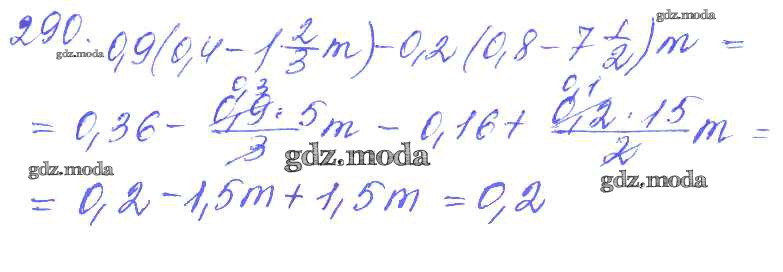 290. 0,9(0,4 - 1 2/3 m) - 0,2(0,8 - 7 1/2)m =
= 0,36 - 0,9 · 5/3 m - 0,16 + 0,2 · 15/2 m =
0,3 0,1
= 0,2 - 1,5m + 1,5m = 0,2
gdz.moda
gdz.moda
gdz.moda
gdz.moda
gdz.moda